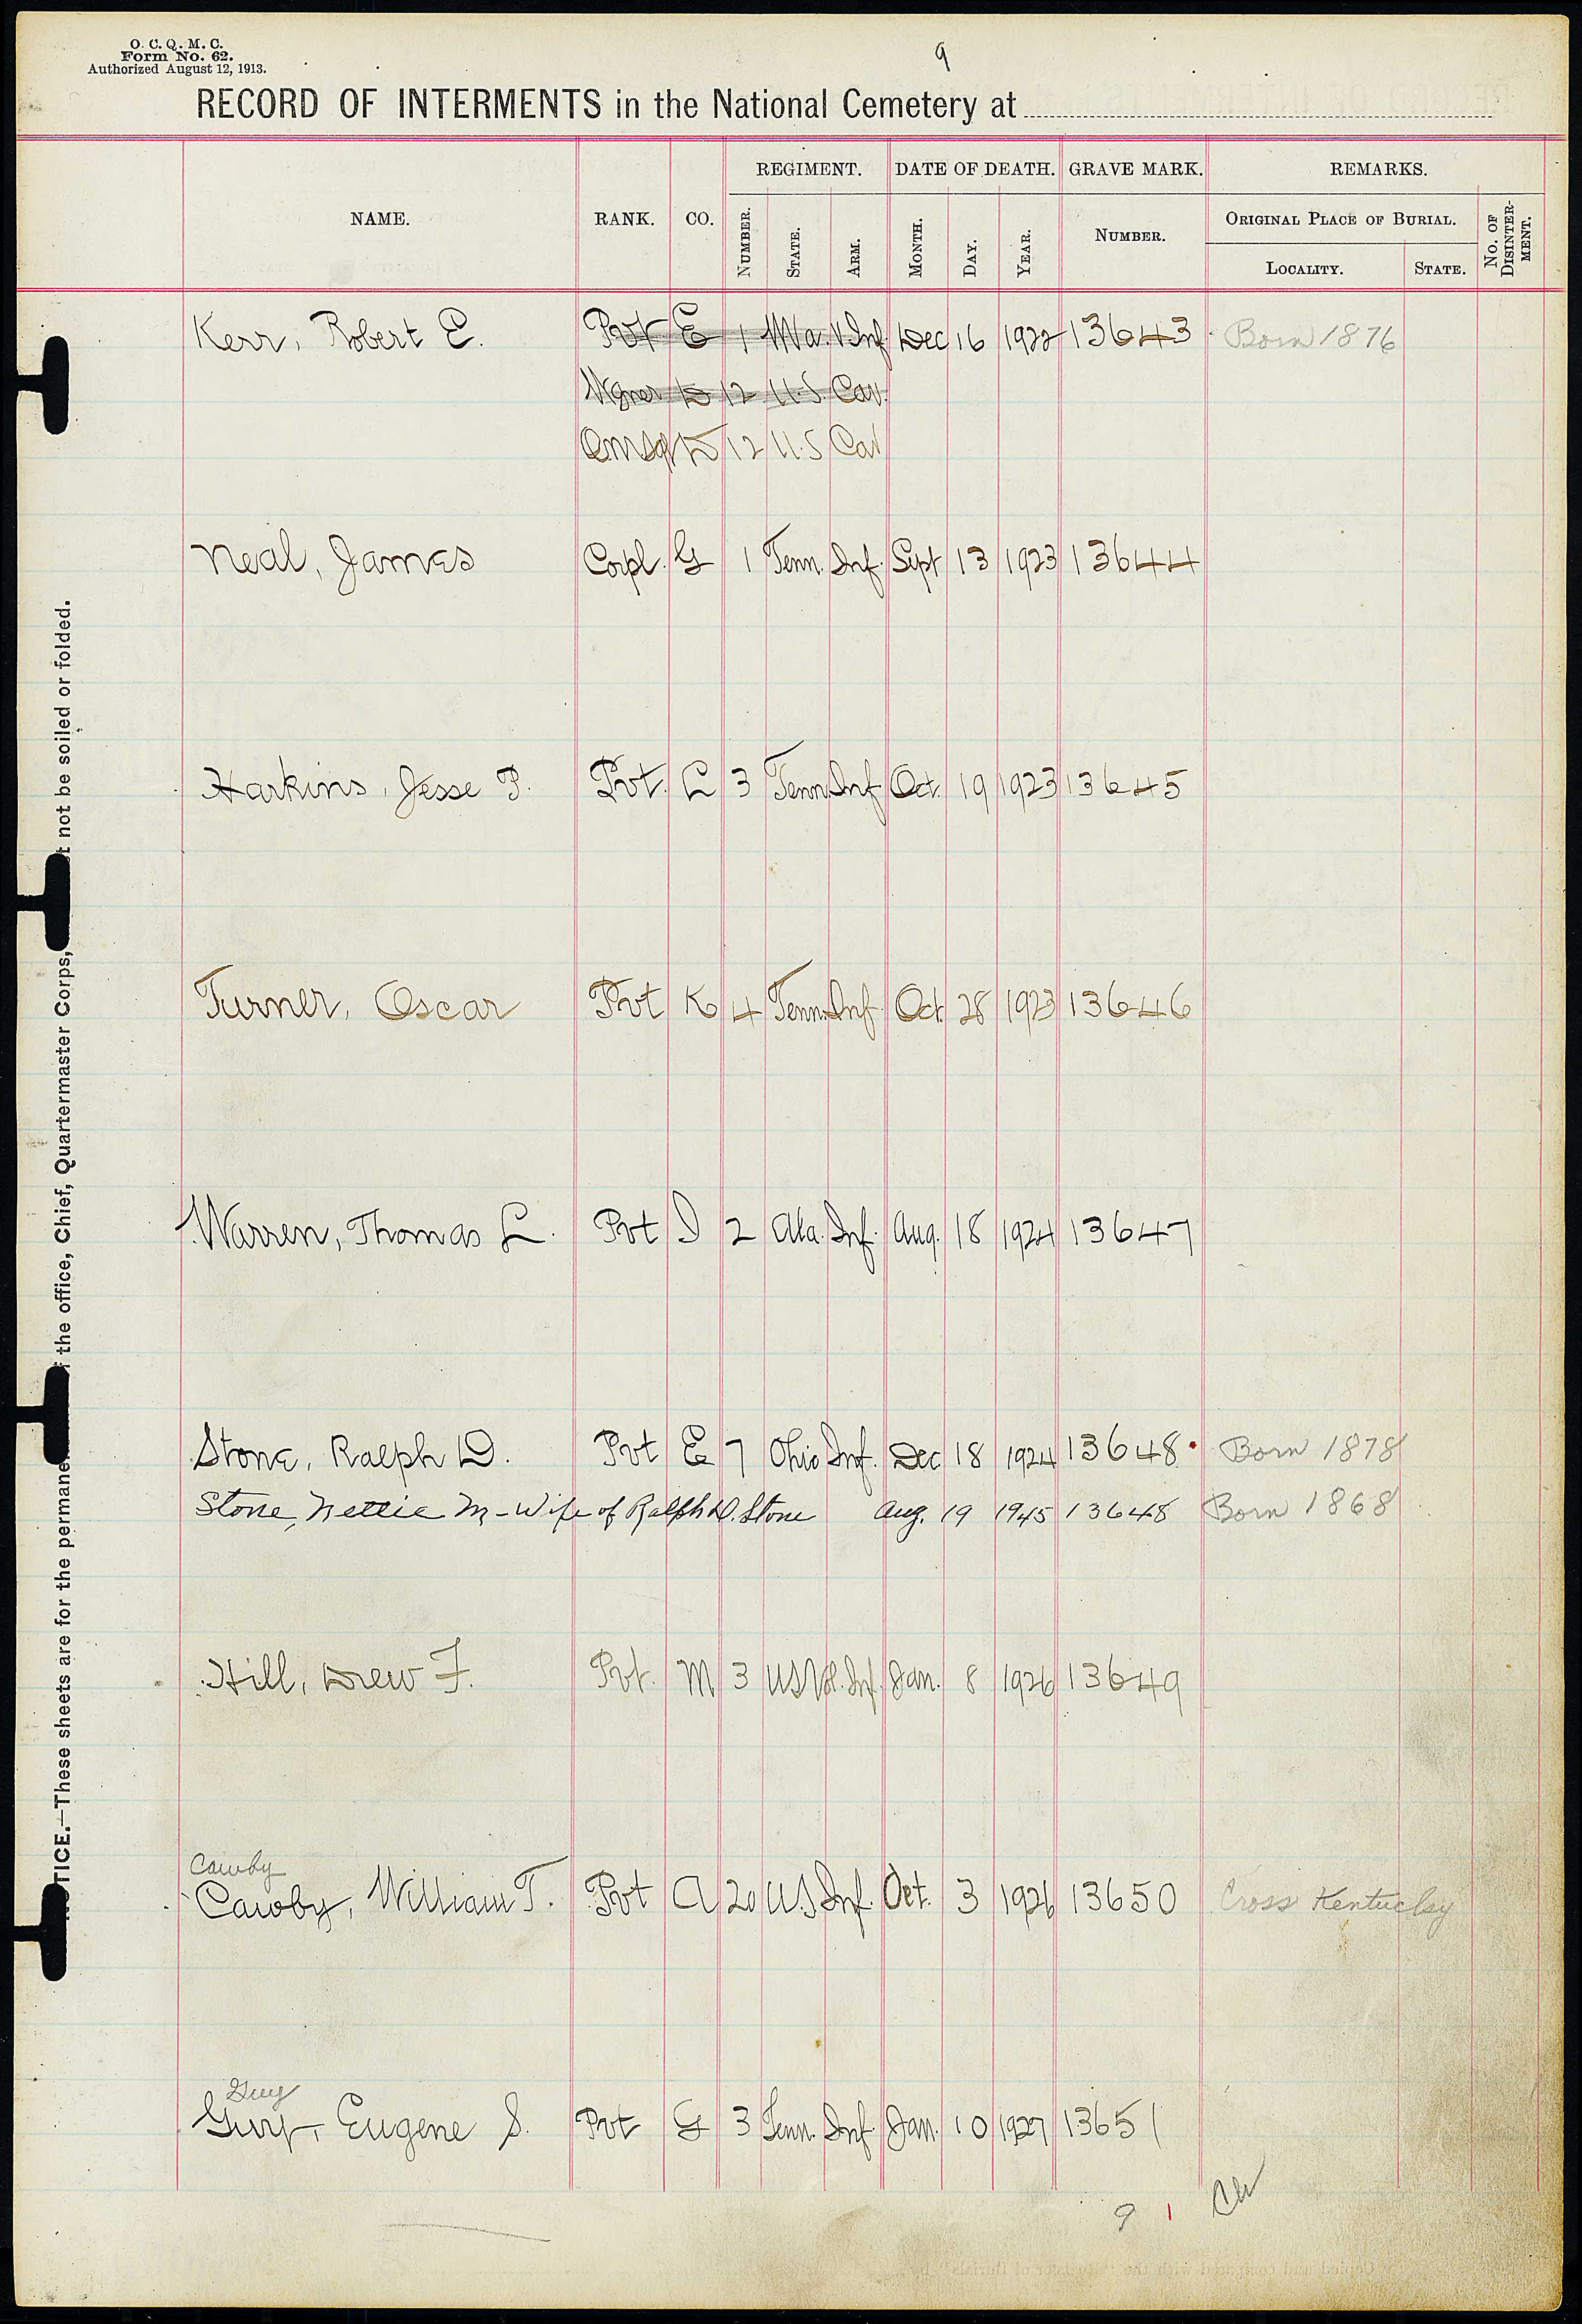 O. C. Q. M. C.
Form No. 62.
Authorized August 12, 1913.
9
RECORD OF INTERMENTS in the National Cemetery at
NAME. RANK. CO. REGIMENT. DATE OF DEATH. GRAVE MARK. REMARKS.
NUMBER. STATE. ARM. MONTH. DAY. YEAR. NUMBER. ORIGINAL PLACE OF BURIAL. NO. OF DISINTERMENT.
LOCALITY. STATE.
Kerr, Robert E. Pvt E 1 Inf Dec 16 1922 13643 Born 1876
Wgner D 12 U.S Cav.
QMSgt D 12 U.S Cav
Neal, James Corpl. G 1 Tenn. Inf. Sept 13 1923 13644
Harkins, Jesse P. Pvt. L 3 Tenn Inf Oct. 19 1923 13645
Turner, Oscar Pvt K 4 Tenn. Inf. Oct. 28 1923 13646
Warren, Thomas L. Pvt I 2 Ala. Inf. Aug. 18 1924 13647
Stone, Ralph D. Pvt E 7 Ohio Inf. Dec 18 1924 13648 Born 1878
Stone, Nettie M - Wife of Ralph D. Stone Aug. 19 1945 13648 Born 1868
Hill, Drew F. Pvt. M 3 USVol. Inf. Jan. 8 1926 13649
Cawby
Cawby, William T. Pvt A 20 U.S Inf. Oct. 3 1926 13650 Cross Kentucky
Guy
Guy, Eugene S. Pvt G 3 Tenn. Inf. Jan. 10 1927 13651
9 1
NOTICE.—These sheets are for the permane the office, Chief, Quartermaster Corps, t not be soiled or folded.